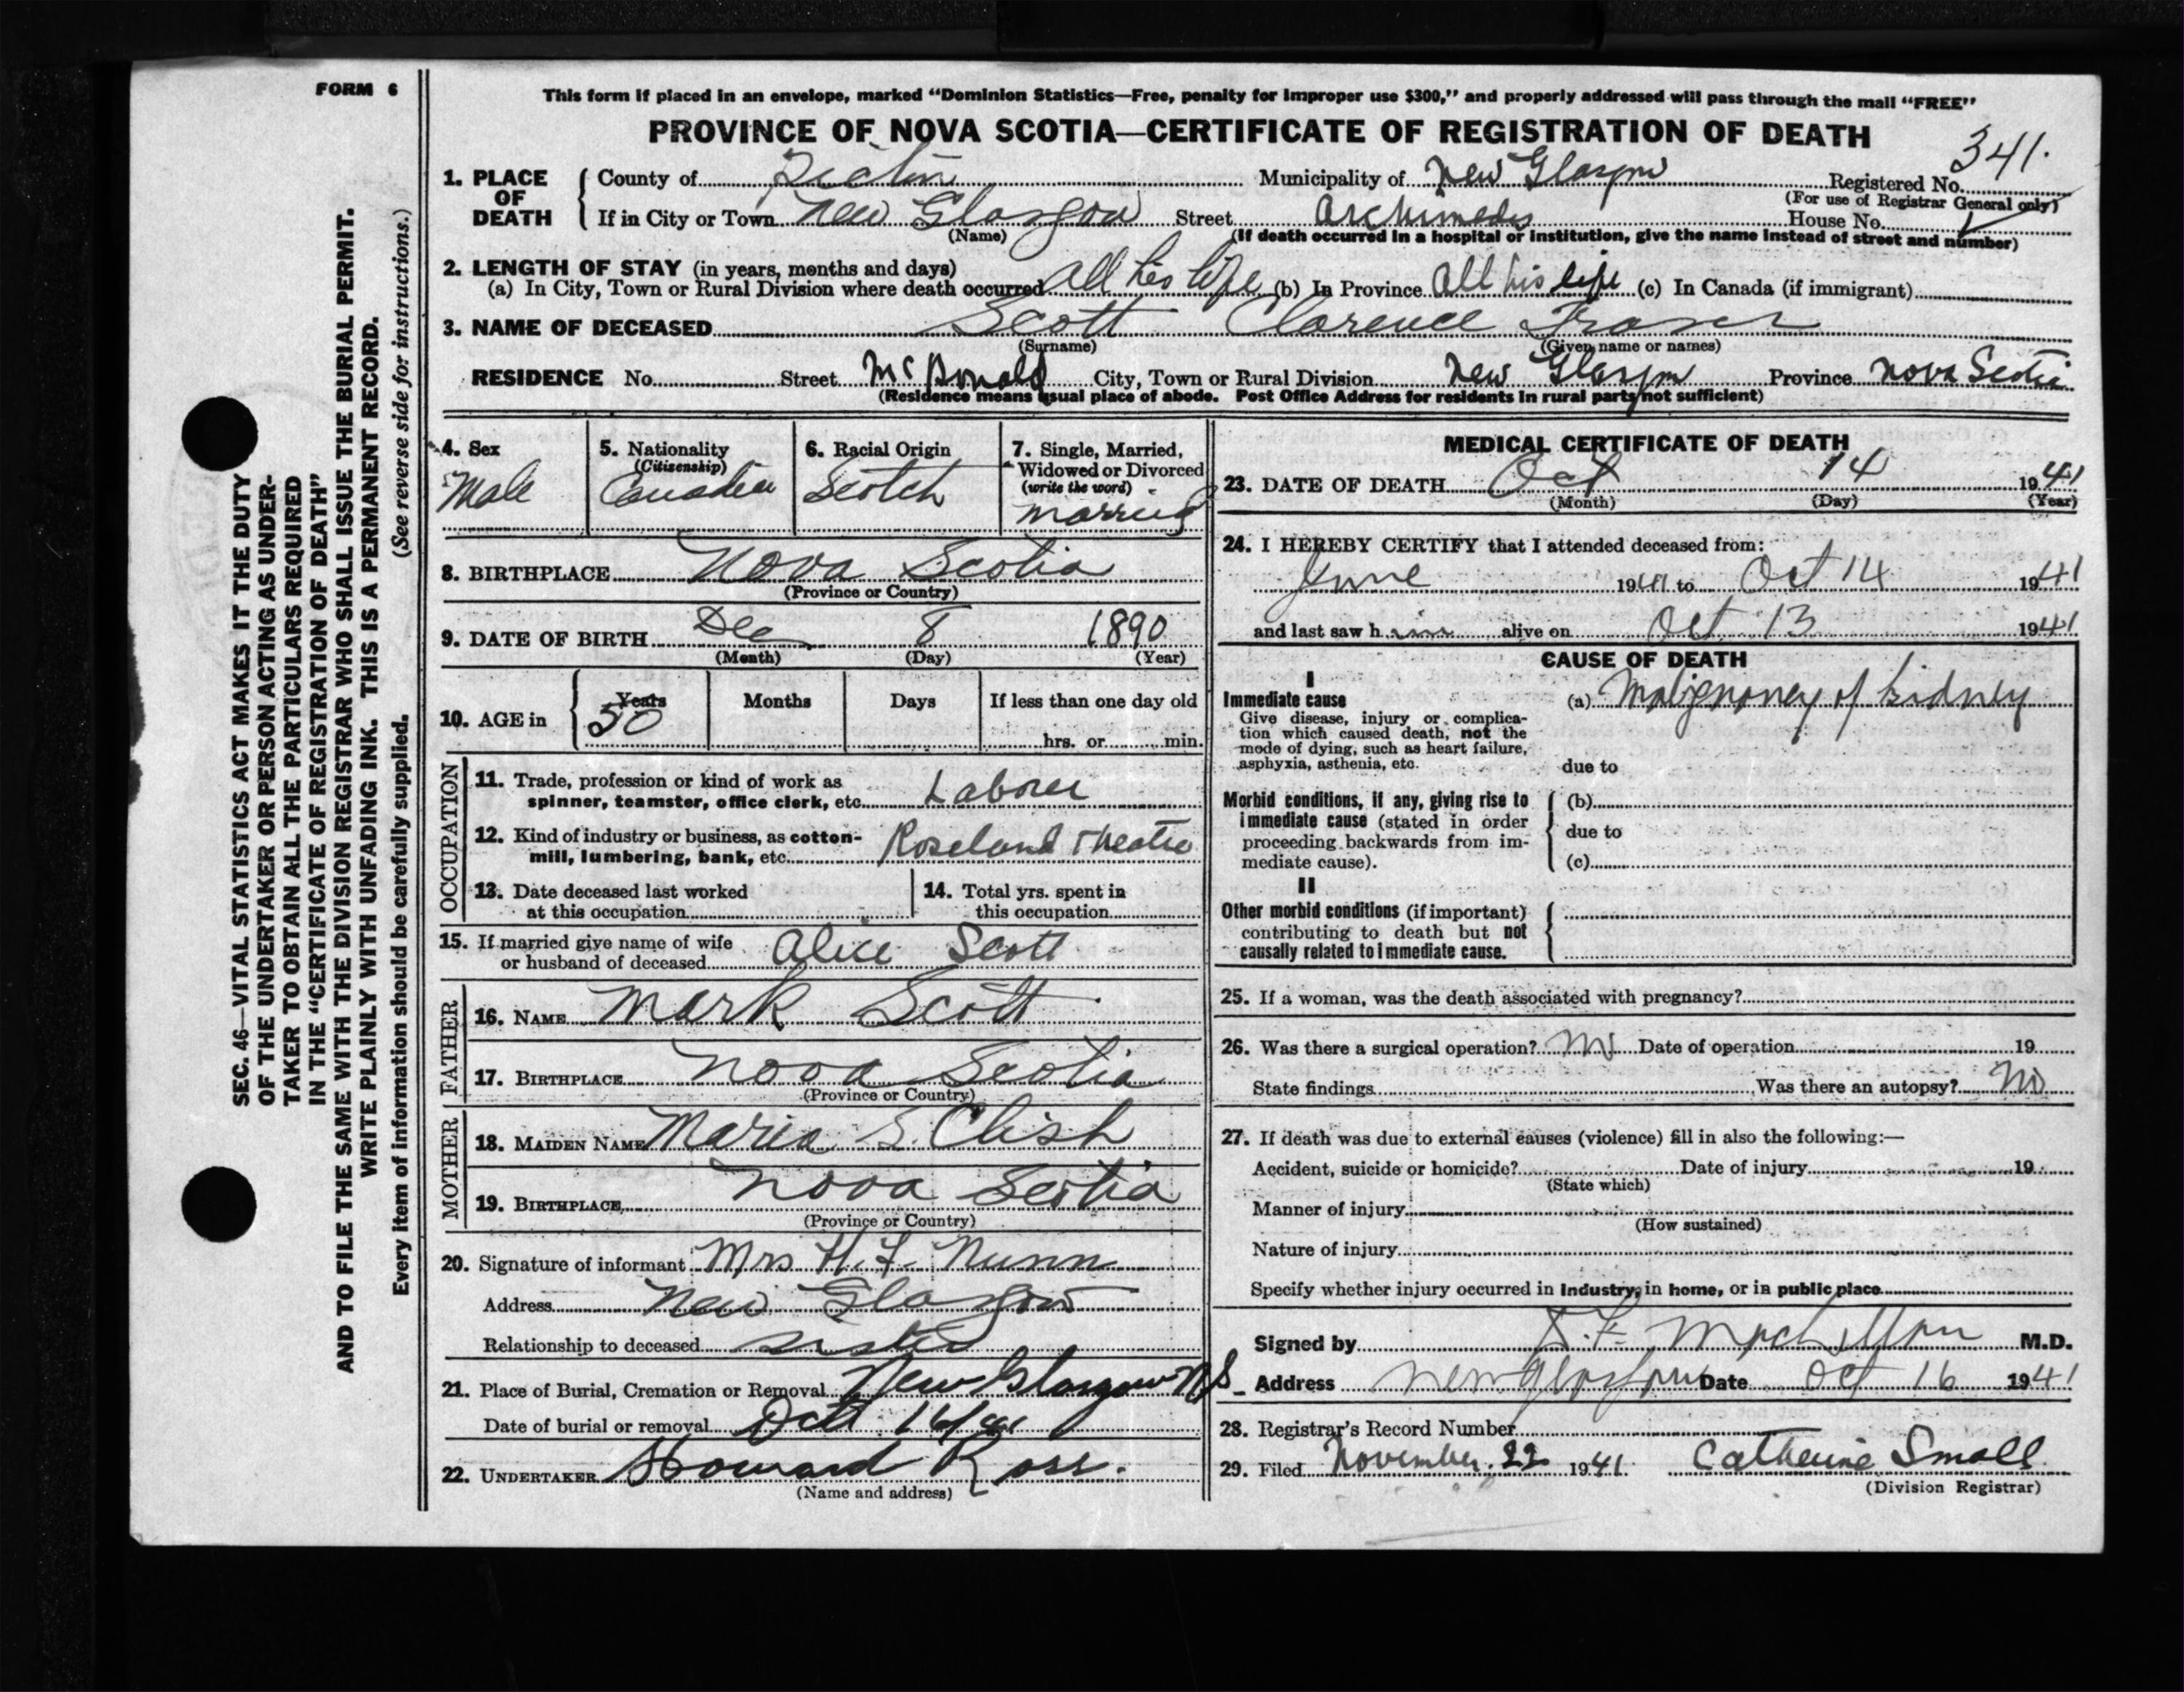 FORM 6
SEC. 46—VITAL STATISTICS ACT MAKES IT THE DUTY
OF THE UNDERTAKER OR PERSON ACTING AS UNDER-
TAKER TO OBTAIN ALL THE PARTICULARS REQUIRED
IN THE "CERTIFICATE OF REGISTRATION OF DEATH"
AND TO FILE THE SAME WITH THE DIVISION REGISTRAR WHO SHALL ISSUE THE BURIAL PERMIT.
WRITE PLAINLY WITH UNFADING INK. THIS IS A PERMANENT RECORD.
Every item of information should be carefully supplied. (See reverse side for instructions.)
This form if placed in an envelope, marked "Dominion Statistics—Free, penalty for improper use $300," and properly addressed will pass through the mail "FREE"
PROVINCE OF NOVA SCOTIA—CERTIFICATE OF REGISTRATION OF DEATH
1. PLACE OF DEATH
County of Pictou Municipality of New Glasgow Registered No. 341.
(For use of Registrar General only)
If in City or Town New Glasgow Street Archimedes House No.
(Name) (If death occurred in a hospital or institution, give the name instead of street and number)
2. LENGTH OF STAY (in years, months and days)
(a) In City, Town or Rural Division where death occurred all his life (b) In Province All his life (c) In Canada (if immigrant)
3. NAME OF DECEASED Scott Clarence Fraser
(Surname) (Given name or names)
RESIDENCE No. Street McDonald City, Town or Rural Division New Glasgow Province Nova Scotia
(Residence means usual place of abode. Post Office Address for residents in rural parts not sufficient)
4. Sex
Male
5. Nationality
(Citizenship)
Canadian
6. Racial Origin
Scotch
7. Single, Married,
Widowed or Divorced
(write the word)
married
8. BIRTHPLACE Nova Scotia
(Province or Country)
9. DATE OF BIRTH Dec 8 1890
(Month) (Day) (Year)
10. AGE in Years Months Days If less than one day old
50 hrs. or min.
OCCUPATION
11. Trade, profession or kind of work as
spinner, teamster, office clerk, etc. Laborer
12. Kind of industry or business, as cotton-
mill, lumbering, bank, etc. Roseland Theatre
13. Date deceased last worked
at this occupation
14. Total yrs. spent in
this occupation
15. If married give name of wife
or husband of deceased Alice Scott
FATHER
16. NAME Mark Scott
17. BIRTHPLACE Nova Scotia
(Province or Country)
MOTHER
18. MAIDEN NAME Maria S. Clish
19. BIRTHPLACE Nova Scotia
(Province or Country)
20. Signature of informant Mrs H. F. Nunn
Address New Glasgow
Relationship to deceased sister
21. Place of Burial, Cremation or Removal New Glasgow NS
Date of burial or removal Oct. 16/41
22. UNDERTAKER Howard Ross.
(Name and address)
MEDICAL CERTIFICATE OF DEATH
23. DATE OF DEATH Oct 14 1941
(Month) (Day) (Year)
24. I HEREBY CERTIFY that I attended deceased from:
June 1941 to Oct 14 1941
and last saw him alive on Oct 13 1941
CAUSE OF DEATH
I
Immediate cause
Give disease, injury or complica-
tion which caused death, not the
mode of dying, such as heart failure,
asphyxia, asthenia, etc.
(a) Malignancy of kidney
due to
Morbid conditions, if any, giving rise to
immediate cause (stated in order
proceeding backwards from im-
mediate cause).
(b)
due to
(c)
II
Other morbid conditions (if important)
contributing to death but not
causally related to immediate cause.
25. If a woman, was the death associated with pregnancy?
26. Was there a surgical operation? No Date of operation 19
State findings Was there an autopsy? No
27. If death was due to external causes (violence) fill in also the following:—
Accident, suicide or homicide? Date of injury 19
(State which)
Manner of injury
(How sustained)
Nature of injury
Specify whether injury occurred in industry, in home, or in public place
Signed by F. M.D.
Address New Glasgow Date Oct 16 1941
28. Registrar's Record Number
29. Filed November 22 1941. Catherine Small
(Division Registrar)